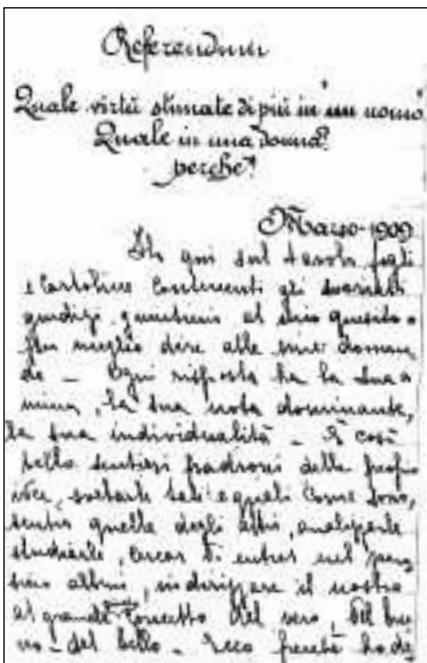 Referendum
Quale virtù stimate di più in un uomo
Quale in una donna?
perchè?
Marzo-1909
Ho qui sul tavolo fogli
e Cartoline contenenti gli svariati
giudizi al mio quesito o
per meglio dire alle mie doman
de - Ogni risposta ha la sua a
nima, la sua nota dominante,
la sua individualità - È così
bello sentirsi padroni delle proprie
idee, tali e quali come sono,
sentir quelle degli altri, analizzarle
studiarle, cercar di entrar nel pen
siero altrui, indirizzare il nostro
al grande Concetto del vero, del buo
no - del bello - Ecco perchè ho